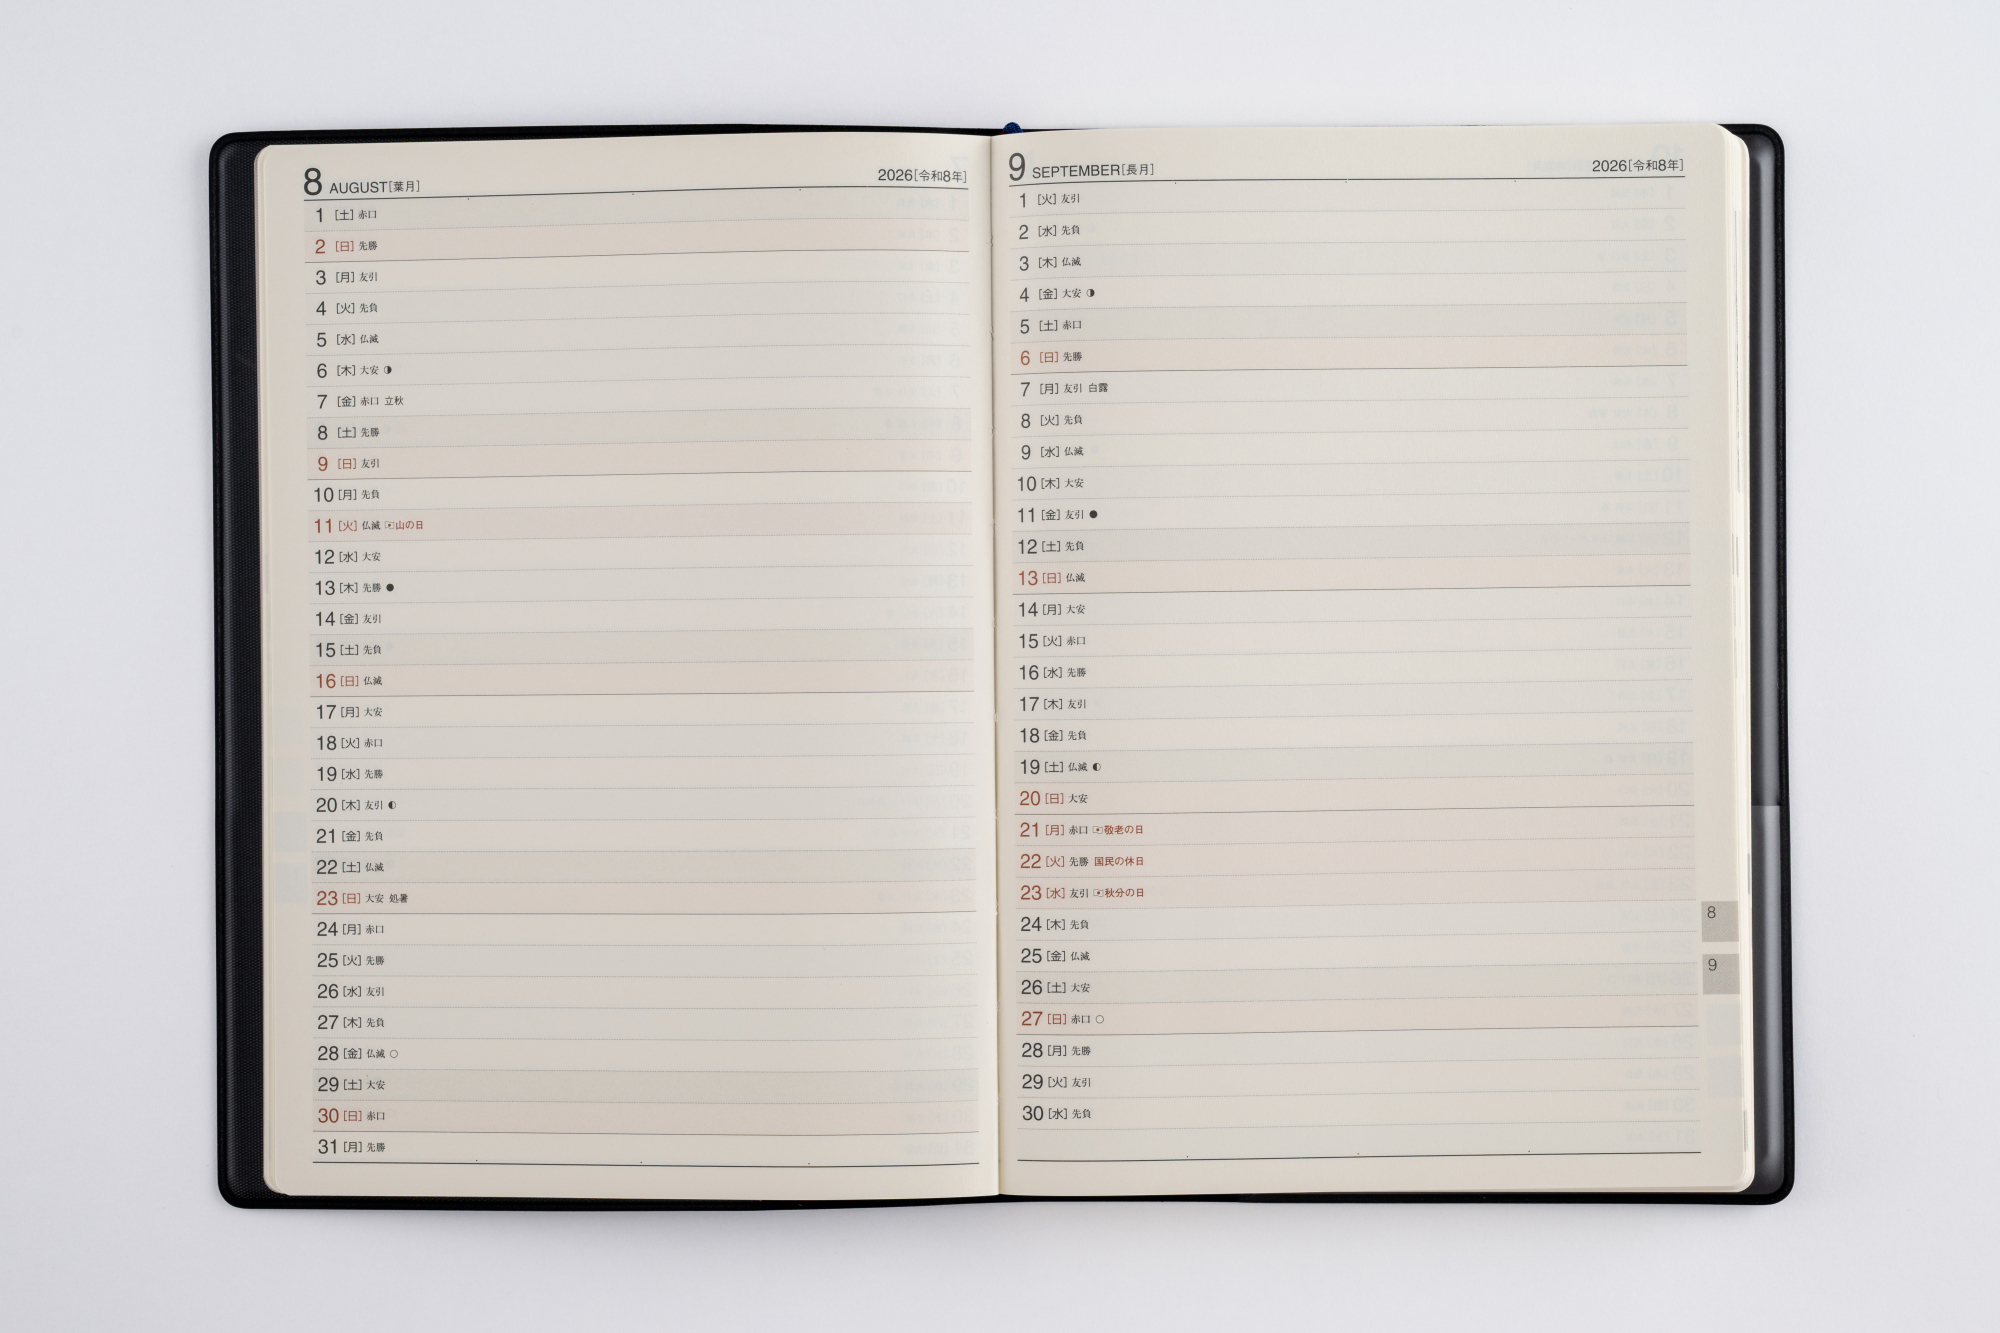 8 AUGUST[葉月] 2026[令和8年]
1 [土] 赤口
2 [日] 先勝
3 [月] 友引
4 [火] 先負
5 [水] 仏滅
6 [木] 大安 ◑
7 [金] 赤口 立秋
8 [土] 先勝
9 [日] 友引
10 [月] 先負
11 [火] 仏滅 山の日
12 [水] 大安
13 [木] 先勝 ●
14 [金] 友引
15 [土] 先負
16 [日] 仏滅
17 [月] 大安
18 [火] 赤口
19 [水] 先勝
20 [木] 友引 ◐
21 [金] 先負
22 [土] 仏滅
23 [日] 大安 処暑
24 [月] 赤口
25 [火] 先勝
26 [水] 友引
27 [木] 先負
28 [金] 仏滅 ○
29 [土] 大安
30 [日] 赤口
31 [月] 先勝
9 SEPTEMBER[長月] 2026[令和8年]
1 [火] 友引
2 [水] 先負
3 [木] 仏滅
4 [金] 大安 ◑
5 [土] 赤口
6 [日] 先勝
7 [月] 友引 白露
8 [火] 先負
9 [水] 仏滅
10 [木] 大安
11 [金] 友引 ●
12 [土] 先負
13 [日] 仏滅
14 [月] 大安
15 [火] 赤口
16 [水] 先勝
17 [木] 友引
18 [金] 先負
19 [土] 仏滅 ◐
20 [日] 大安
21 [月] 赤口 敬老の日
22 [火] 先勝 国民の休日
23 [水] 友引 秋分の日
24 [木] 先負
25 [金] 仏滅
26 [土] 大安
27 [日] 赤口 ○
28 [月] 先勝
29 [火] 友引
30 [水] 先負
8
9